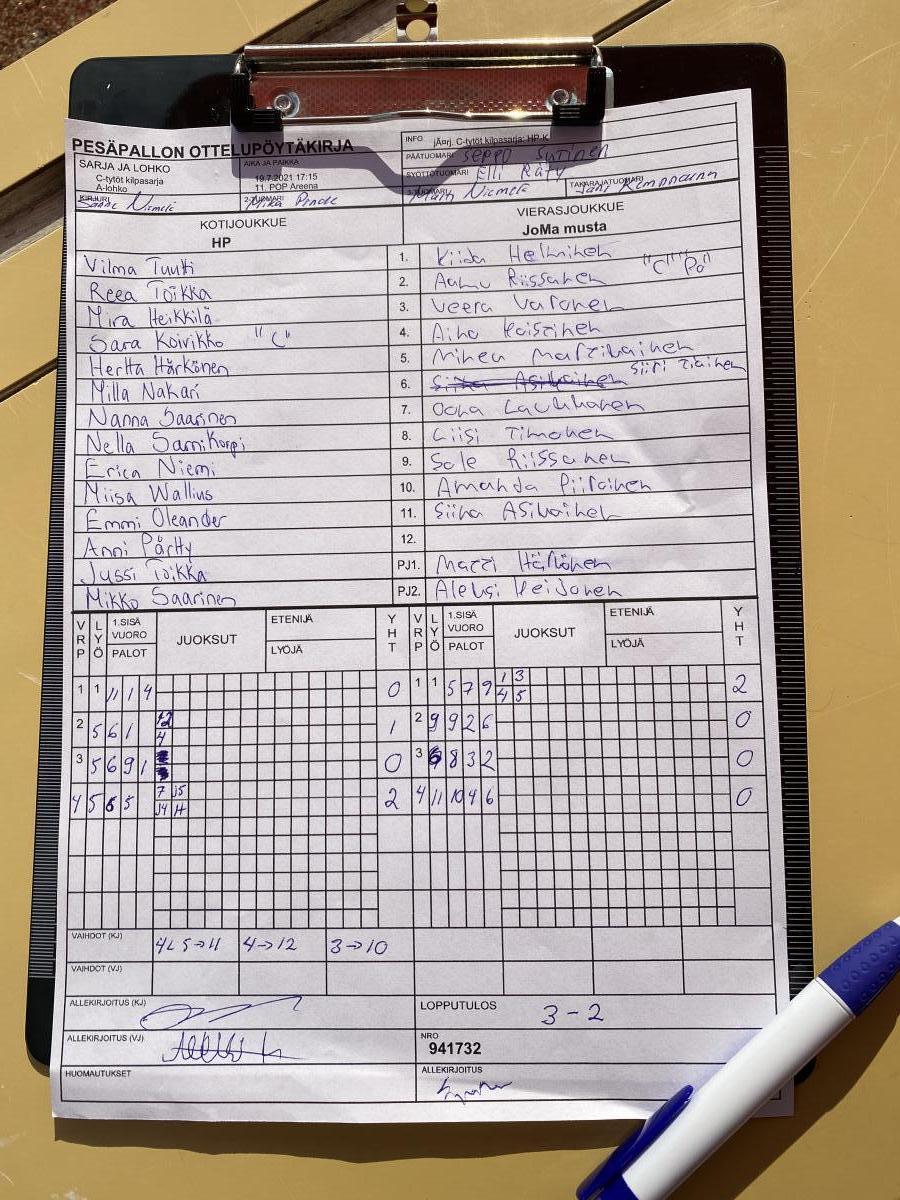 PESÄPALLON OTTELUPÖYTÄKIRJA
INFO jÄ¤rj. C-tytöt kilpasarja: HP-K
PÄÄTUOMARI Seppo Sutinen
SARJA JA LOHKO
C-tytöt kilpasarja
A-lohko
AIKA JA PAIKKA
19.7.2021 17:15
11. POP Areena
SYÖTTÖTUOMARI Elli Räty
KIRJURI Niemelä
2-TUOMARI Mika
3-TUOMARI Niemelä
TAKARAJATUOMARI Jani Kemppainen
KOTIJOUKKUE
HP
VIERASJOUKKUE
JoMa musta
Vilma Tuutti 1. Kiida Helminen
Reea Toikka 2. Aamu Riissanen "C" "Po"
Mira Heikkilä 3. Veera Varonen
Sara Koivikko "C" 4. Aino Koistinen
Hertta Härkönen 5. Minea Martikainen
Milla Nakari 6. Siina Asikainen Siiri Tiainen
Nanna Saarinen 7. Oona Laukkanen
Nella Sarnikorpi 8. Liisi Timonen
Erica Niemi 9. Sole Riissanen
Miisa Wallius 10. Amanda Piiroinen
Emmi Oleander 11. Siina Asikainen
Anni Pärtty 12.
Jussi Toikka PJ1. Matti Hällönen
Mikko Saarinen PJ2. Aleksi Heidonen
VRP LYÖ 1.SISÄ VUORO PALOT JUOKSUT ETENIJÄ LYÖJÄ YHT VRP LYÖ 1.SISÄ VUORO PALOT JUOKSUT ETENIJÄ LYÖJÄ YHT
1 1 11 1 4 0 1 1 5 7 9 1 3 2
4 5
2 5 6 1 12 1 2 9 9 2 6 0
4
3 5 6 9 1 0 3 6 8 3 2 0
4 5 6 5 7 J5 2 4 11 10 4 6 0
J4 H
VAIHDOT (KJ) 4L 5→11 4→12 3→10
VAIHDOT (VJ)
ALLEKIRJOITUS (KJ)
LOPPUTULOS 3-2
ALLEKIRJOITUS (VJ)
NRO
941732
HUOMAUTUKSET
ALLEKIRJOITUS